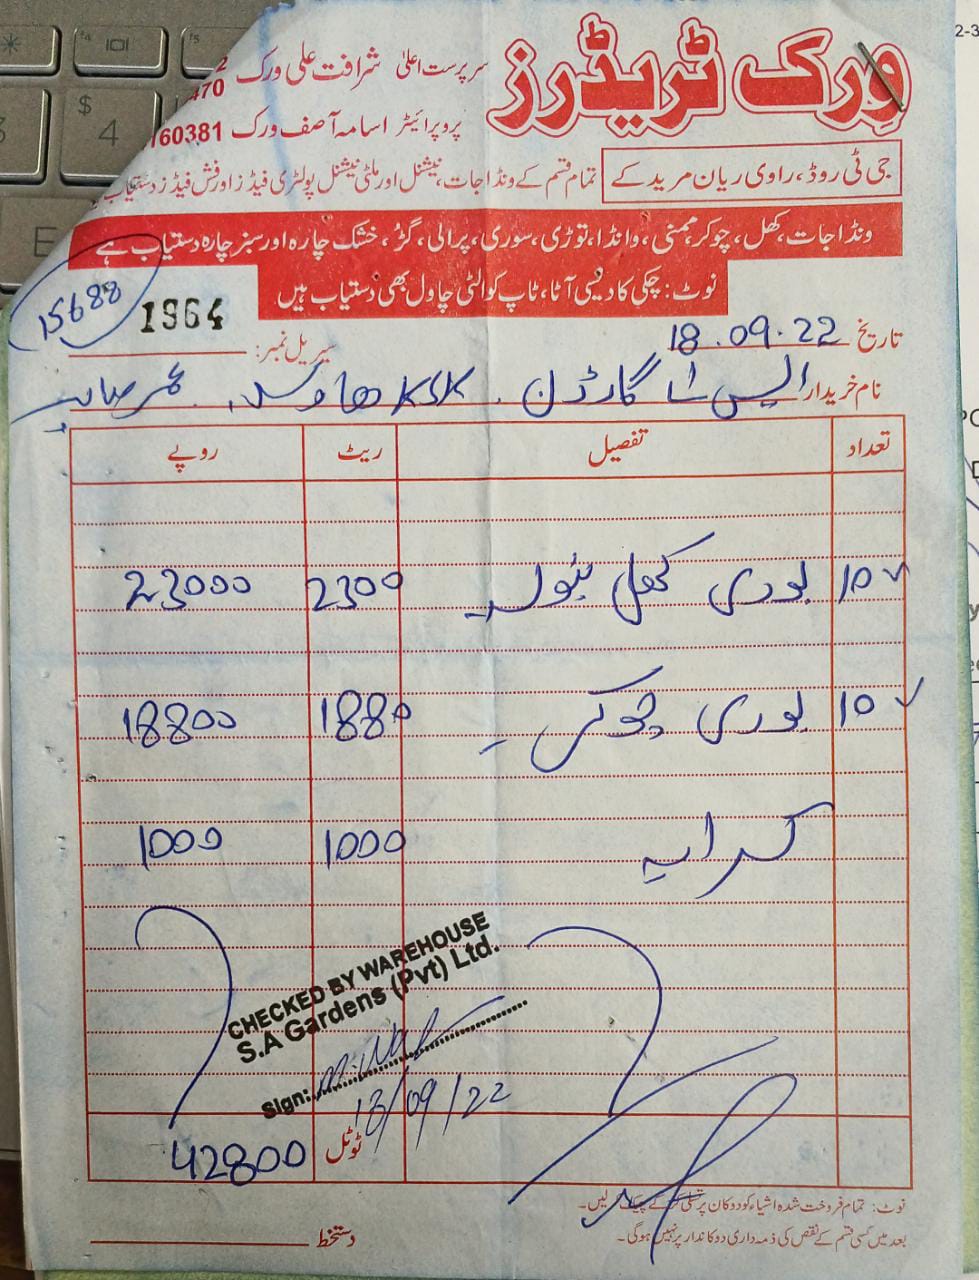 ورک ٹریڈرز
سرپرست اعلیٰ شرافت علی ورک
470
پروپرائیٹر اسامہ آصف ورک 160381
جی ٹی روڈ، راوی ریان مرید کے
تمام قسم کے ونڈا جات، نیشنل اور ملٹی نیشنل پولٹری فیڈز اور فش فیڈز دستیاب
ونڈا جات، کھل، چوکر، ممنی، وانڈا، توڑی، سوری، پرالی، گڑ، خشک چارہ اور سبز چارہ دستیاب ہے
نوٹ: چکی کا دیسی آٹا، ٹاپ کوالٹی چاول بھی دستیاب ہیں
15688
تاریخ 18.09.22
سیریل نمبر: 1964
نام خریدار ایس اے گارڈن . KSK ھاوس، عمر صاحب
تعداد تفصیل ریٹ روپے
10 بوری کھل بنولہ 2300 23000
10 بوری چوکر 1880 18800
کرایہ 1000 1000
CHECKED BY WAREHOUSE
S.A Gardens (Pvt) Ltd.
Sign:
18/09/22
ٹوٹل 42800
نوٹ: تمام فروخت شدہ اشیاء کو دوکان پر تسلی کر کے لیں۔
بعد میں کسی قسم کے نقص کی ذمہ داری دوکاندار پر نہیں ہوگی۔
دستخط